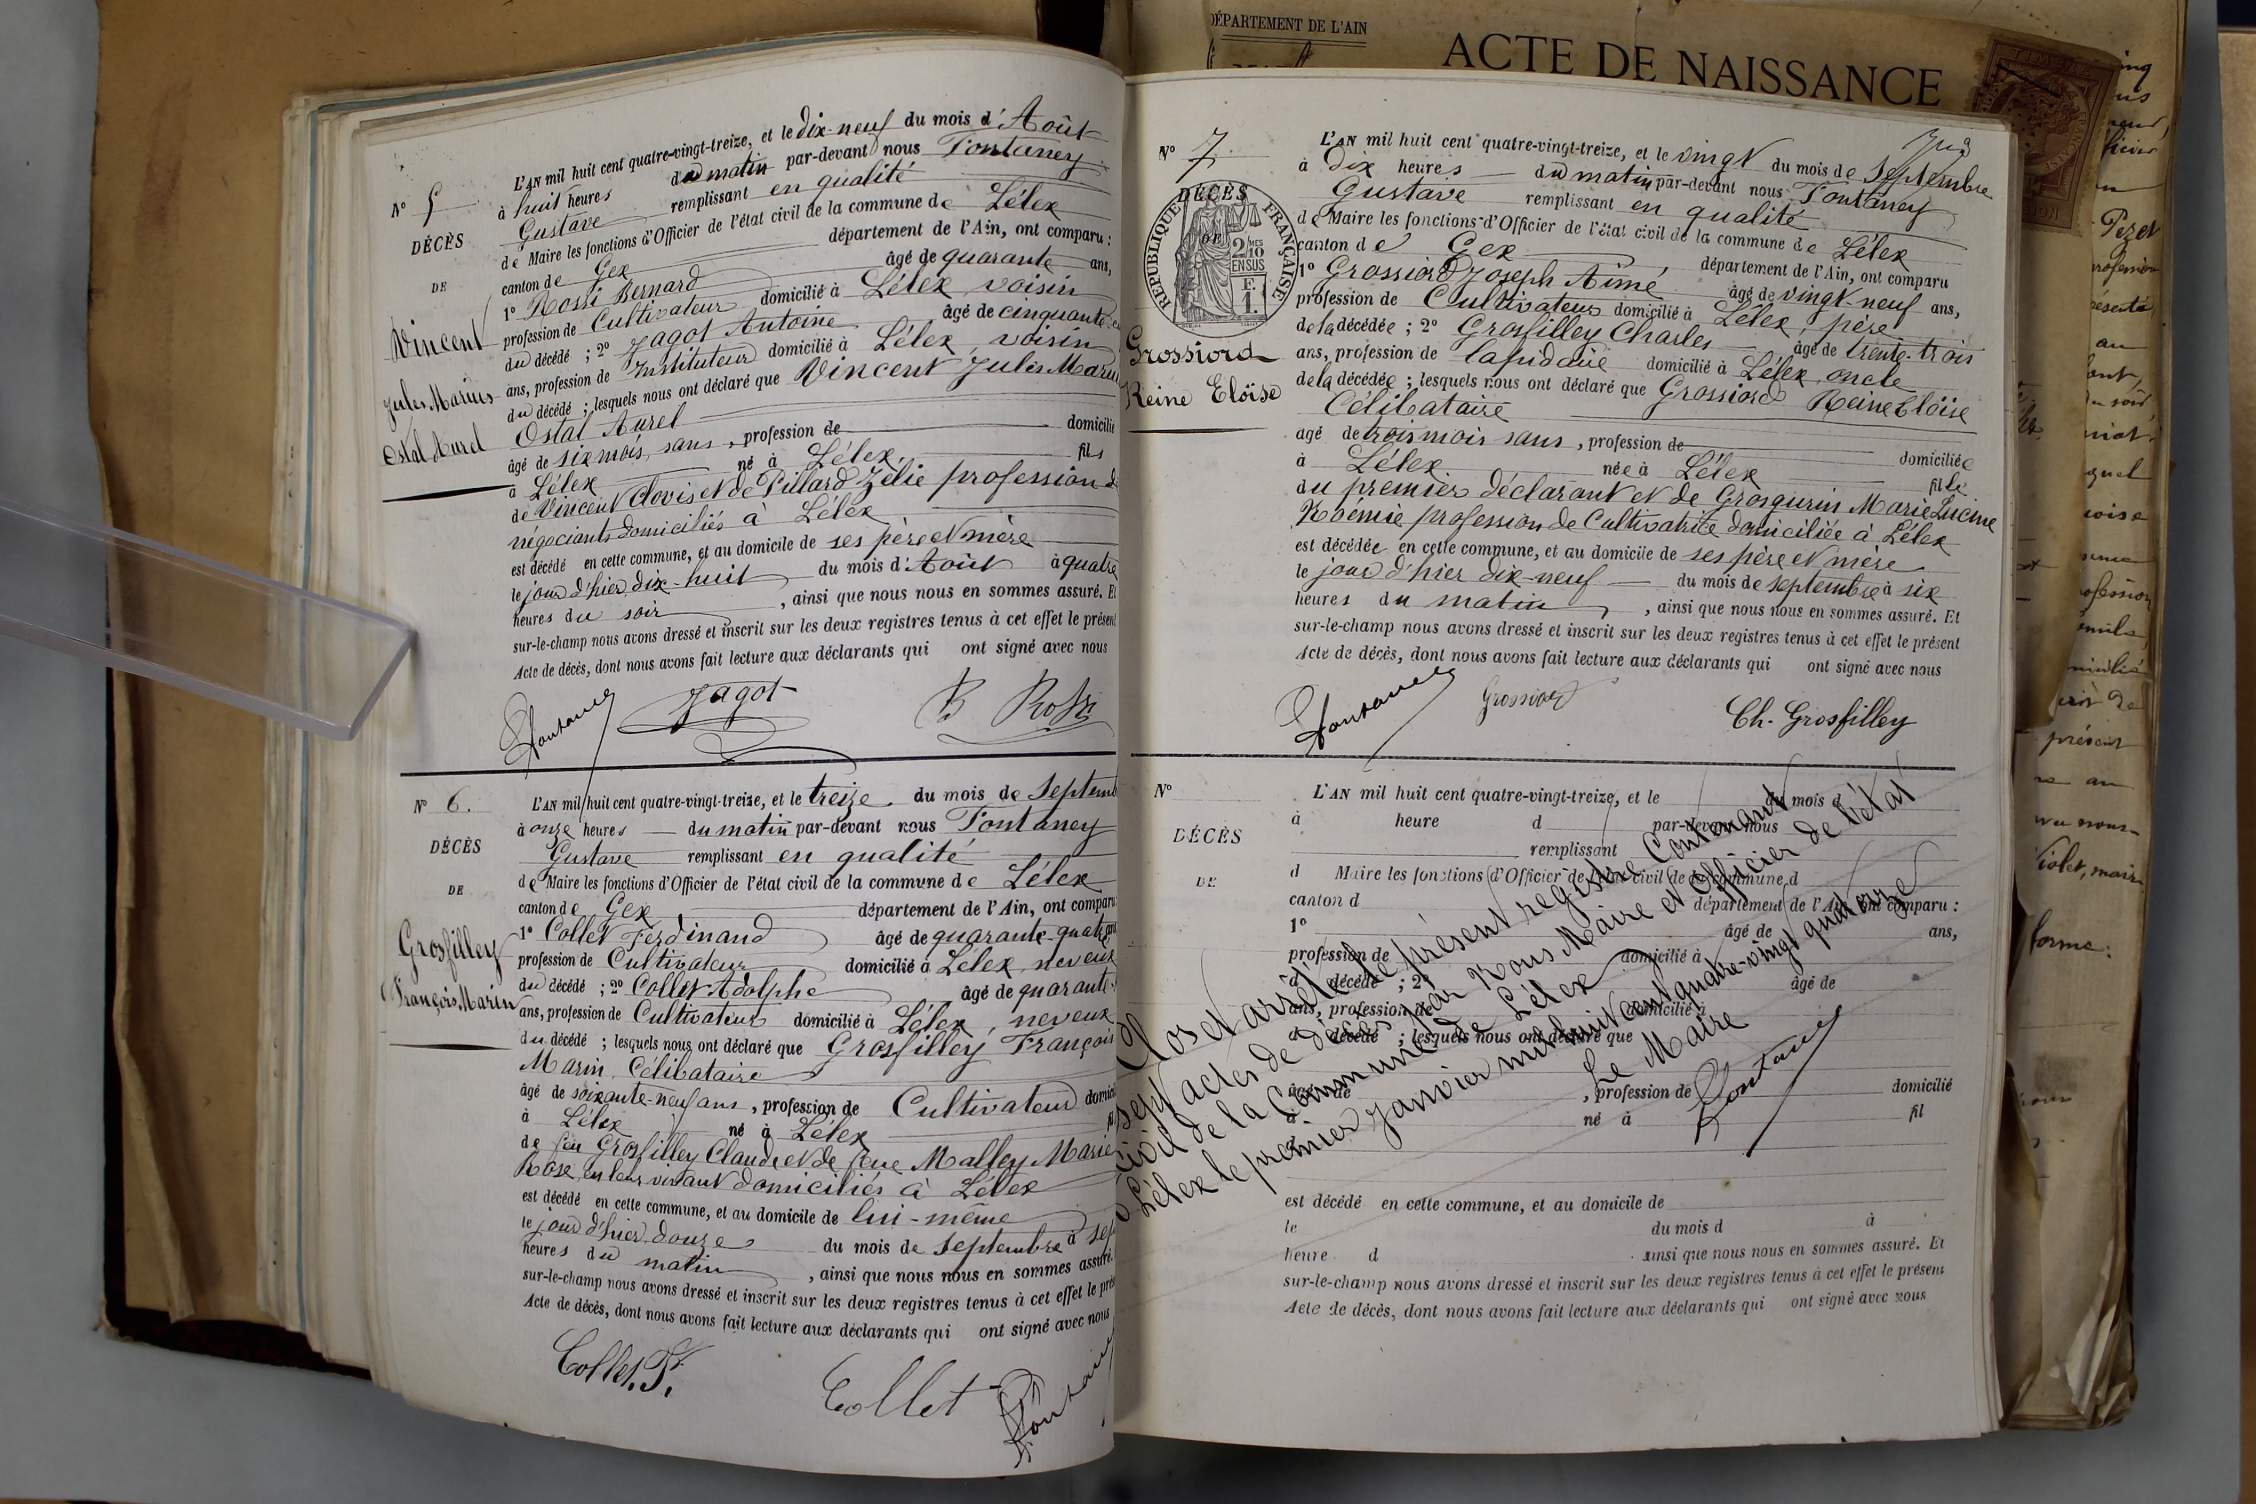 N° 5
DÉCÈS
DE
Vincent
Jules Marius
Ostal Aurel
L'AN mil huit cent quatre-vingt-treize, et le dix-neuf du mois d'Août
à huit heures du matin par-devant nous Fontaney
Gustave remplissant en qualité
de Maire les fonctions d'Officier de l'état civil de la commune de Lélex
canton de Gex département de l'Ain, ont comparu :
1° Rossi Bernard âgé de quarante ans,
profession de Cultivateur domicilié à Lélex, voisin
du décédé ; 2° Jagot Antoine âgé de cinquante
ans, profession de Instituteur domicilié à Lélex, voisin
du décédé ; lesquels nous ont déclaré que Vincent Jules Marius
Ostal Aurel
âgé de six mois, sans, profession de domicilié
à Lélex né à Lélex fils
de Vincent Clovis et de Pillard Zélie profession de
négociants domiciliés à Lélex
est décédé en cette commune, et au domicile de ses père et mère
le jour d'hier dix-huit du mois d'Août à quatre
heures du soir, ainsi que nous nous en sommes assuré. Et
sur-le-champ nous avons dressé et inscrit sur les deux registres tenus à cet effet le présent
Acte de décès, dont nous avons fait lecture aux déclarants qui ont signé avec nous
Fontaney Jagot B Rossi
N° 6.
DÉCÈS
DE
Grosfilley
François Marin
L'AN mil huit cent quatre-vingt-treize, et le treize du mois de Septemb
à onze heures du matin par-devant nous Fontaney
Gustave remplissant en qualité
de Maire les fonctions d'Officier de l'état civil de la commune de Lélex
canton de Gex département de l'Ain, ont comparu
1° Collet Ferdinand âgé de quarante-quatre ans
profession de Cultivateur domicilié à Lélex, neveux
du décédé ; 2° Collet Adolphe âgé de quarante
ans, profession de Cultivateur domicilié à Lélex, neveux
du décédé ; lesquels nous ont déclaré que Grosfilley François
Marin, Célibataire
âgé de soixante-neuf ans, profession de Cultivateur domici
à Lélex né à Lélex fil
de feu Grosfilley Claude et de feue Malley Marie
Rose, en leur vivant domiciliés à Lélex
est décédé en cette commune, et au domicile de lui-même
le jour d'hier douze du mois de septembre à sep
heures du matin, ainsi que nous nous en sommes assuré.
sur-le-champ nous avons dressé et inscrit sur les deux registres tenus à cet effet le prés
Acte de décès, dont nous avons fait lecture aux déclarants qui ont signé avec nous
Collet. F. Collet Fontaney
DÉPARTEMENT DE L'AIN
ACTE DE NAISSANCE
N° 7
DÉCÈS
DE
RÉPUBLIQUE FRANÇAISE
2/10 MES
EN SUS
F. 1.
Grossiord
Reine Eloïse
L'AN mil huit cent quatre-vingt-treize, et le vingt du mois de Septembre
à Dix heures du matin par-devant nous Fontaney
Gustave remplissant en qualité
de Maire les fonctions d'Officier de l'état civil de la commune de Lélex
canton de Gex département de l'Ain, ont comparu
1° Grossiord Joseph Aimé âgé de vingt-neuf ans,
profession de Cultivateur domicilié à Lélex, père
de la décédée ; 2° Grosfilley Charles âgé de trente-trois
ans, profession de lapidaire domicilié à Lélex, oncle
de la décédée ; lesquels nous ont déclaré que Grossiord Reine Eloïse
Célibataire
agé de trois mois sans, profession de domiciliée
à Lélex née à Lélex fille
du premier déclarant et de Grosgurin Marie Lucine
Noémie profession de Cultivatrice domiciliée à Lélex
est décédée en cette commune, et au domicile de ses père et mère
le jour d'hier dix-neuf du mois de septembre à six
heures du matin, ainsi que nous nous en sommes assuré. Et
sur-le-champ nous avons dressé et inscrit sur les deux registres tenus à cet effet le présent
Acte de décès, dont nous avons fait lecture aux déclarants qui ont signé avec nous
Fontaney Grossiord Ch. Grosfilley
N°
DÉCÈS
DE
L'AN mil huit cent quatre-vingt-treize, et le du mois d
à heure d par-devant nous
remplissant
d Maire les fonctions d'Officier de l'état civil de la commune d
canton d département de l'Ain, ont comparu :
1° âgé de ans,
profession de domicilié à
d décédé ; 2° âgé de
ans, profession de domicilié à
d décédé ; lesquels nous ont déclaré que
âgé de , profession de domicilié
à né à fil
d
est décédé en cette commune, et au domicile de
le du mois d à
heure d ainsi que nous nous en sommes assuré. Et
sur-le-champ nous avons dressé et inscrit sur les deux registres tenus à cet effet le présent
Acte de décès, dont nous avons fait lecture aux déclarants qui ont signé avec nous
Clos et arrêté le présent registre Contenant
sept actes de décès par Nous Maire et Officier de l'état
civil de la Commune de Lélex
à Lélex le premier Janvier mil huit cent quatre-vingt quatorze
Le Maire
Fontaney